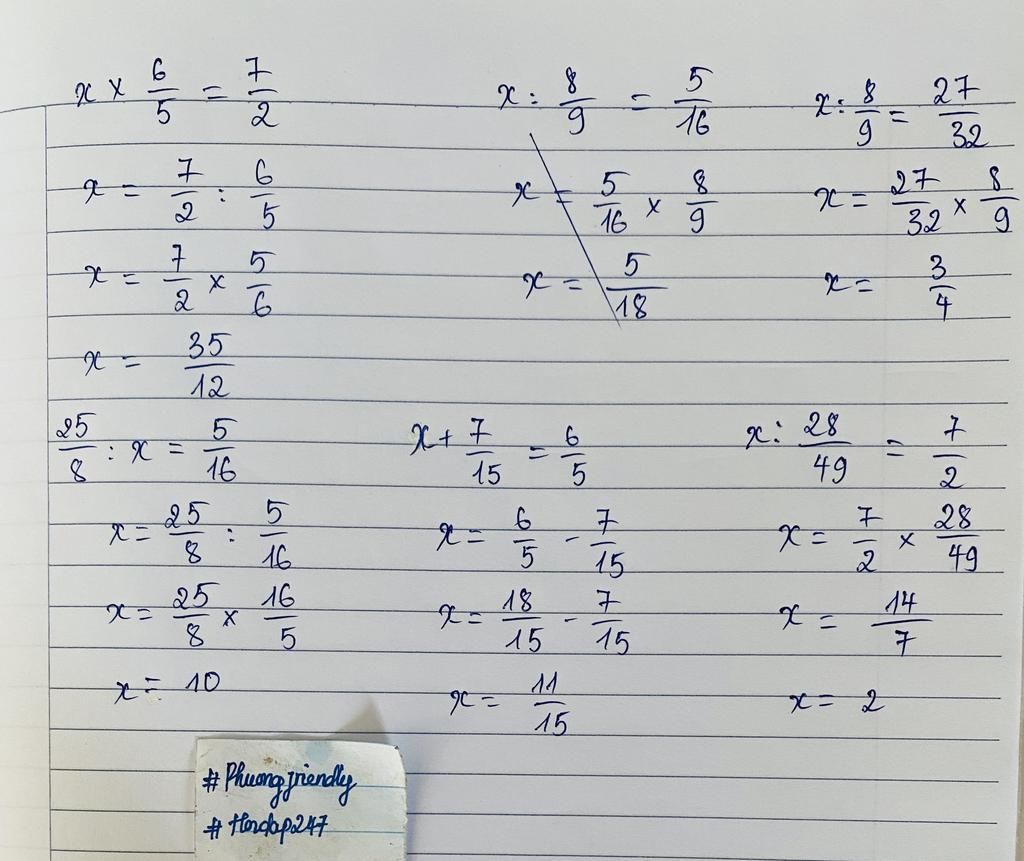 x × 6/5 = 7/2
x = 7/2 : 6/5
x = 7/2 × 5/6
x = 35/12
x : 8/9 = 5/16
x = 5/16 × 8/9
x = 5/18
x : 8/9 = 27/32
x = 27/32 × 8/9
x = 3/4
25/8 : x = 5/16
x = 25/8 : 5/16
x = 25/8 × 16/5
x = 10
x + 7/15 = 6/5
x = 6/5 - 7/15
x = 18/15 - 7/15
x = 11/15
x : 28/49 = 7/2
x = 7/2 × 28/49
x = 14/7
x = 2
#Phuongfriendly
#Hoidap247